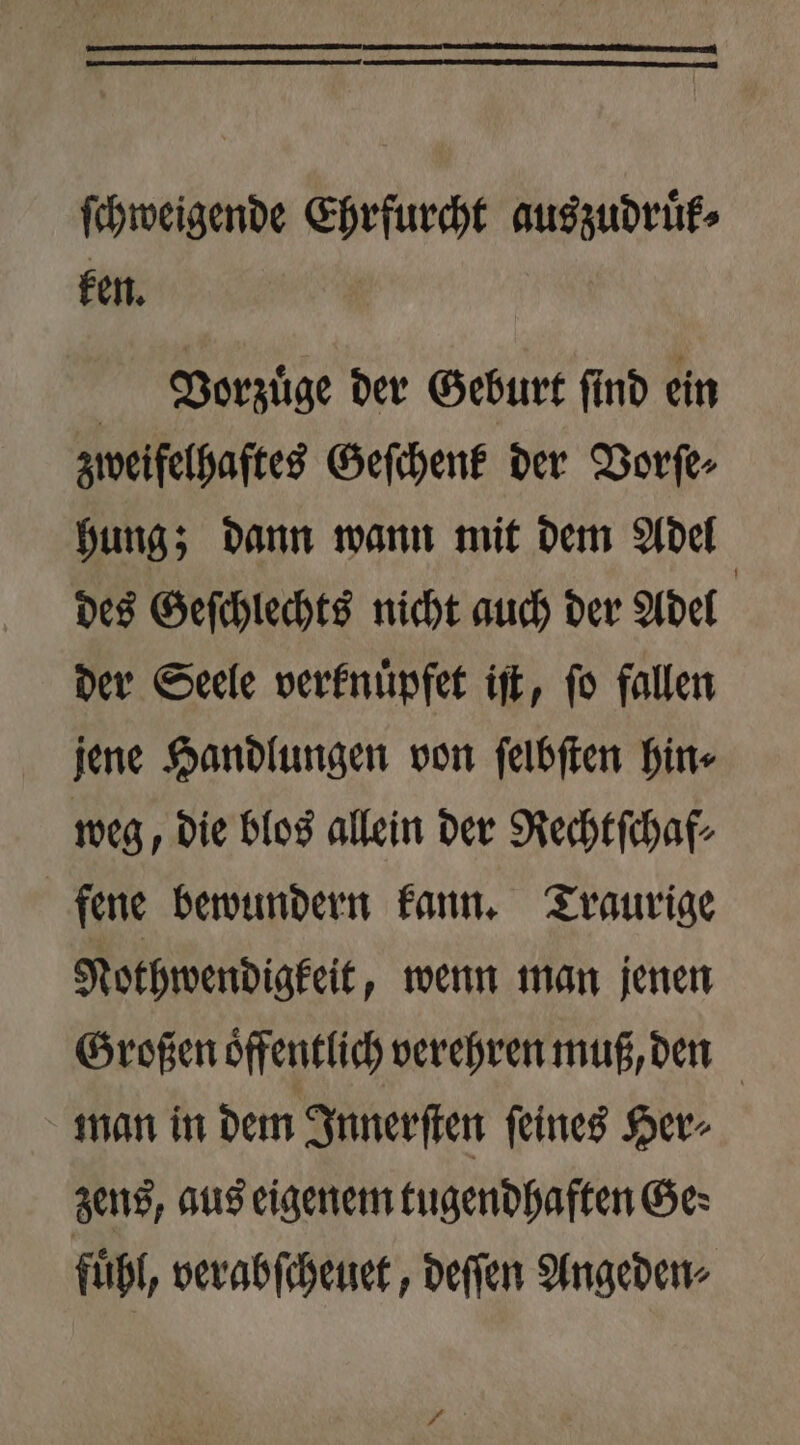 ſchweigende Ehrfurcht auszudruͤk-
ken.
Vorzuͤge der Geburt ſind ein
zweifelhaftes Geſchenk der Vorſe-
hung; dann wann mit dem Adel
des Geſchlechts nicht auch der Adel
der Seele verknuͤpfet iſt, ſo fallen
jene Handlungen von ſelbſten hin-
weg, die blos allein der Rechtſchaf-
fene bewundern kann. Traurige
Nothwendigkeit, wenn man jenen
Großen oͤffentlich verehren muß, den
man in dem Innerſten ſeines Her-
zens, aus eigenem tugendhaften Ge-
fuͤhl, verabſcheuet, deſſen Angeden-